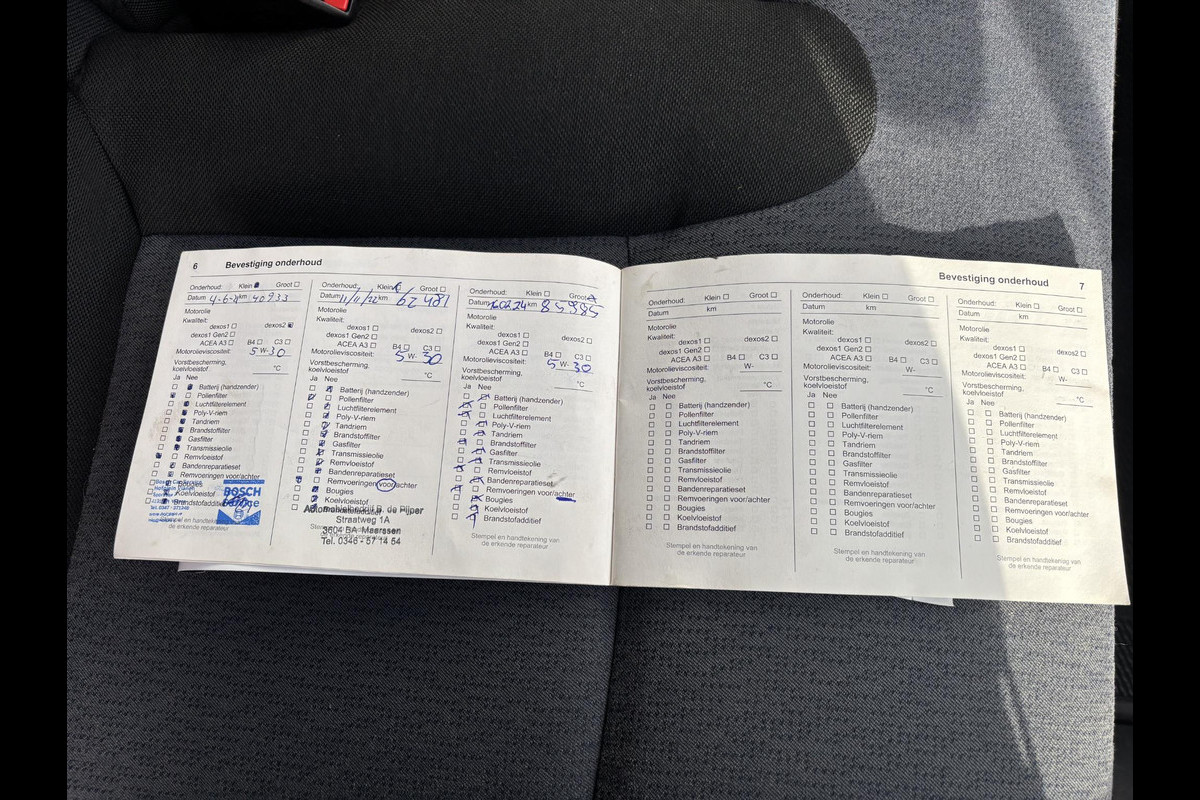 6 Bevestiging onderhoud
Onderhoud: Klein Groot
Datum 4-6- km 40933
Motorolie
Kwaliteit:
dexos1 dexos2
dexos1 Gen2
ACEA A3 B4 C3
Motorolieviscositeit: 5 W-30
Vorstbescherming,
koelvloeistof °C
Ja Nee
Batterij (handzender)
Pollenfilter
Luchtfilterelement
Poly-V-riem
Tandriem
Brandstoffilter
Gasfilter
Transmissieolie
Remvloeistof
Bandenreparatieset
Remvoeringen voor/achter
Bougies
Koelvloeistof
Brandstofadditief
BOSCH
Onderhoud: Klein Groot
Datum 11/11/22 km 62481
Motorolie
Kwaliteit:
dexos1 dexos2
dexos1 Gen2
ACEA A3 B4 C3
Motorolieviscositeit: 5 W- 30
Vorstbescherming,
koelvloeistof °C
Ja Nee
Batterij (handzender)
Pollenfilter
Luchtfilterelement
Poly-V-riem
Tandriem
Brandstoffilter
Gasfilter
Transmissieolie
Remvloeistof
Bandenreparatieset
Remvoeringen voor/achter
Bougies
Koelvloeistof
de Pijper
Straatweg 1A
3604 BA Maarssen
Tel. 0346 - 57 14 54
Onderhoud: Klein Groot
Datum km 85985
Motorolie
Kwaliteit:
dexos1 dexos2
dexos1 Gen2
ACEA A3 B4 C3
Motorolieviscositeit: 5 W- 30
Vorstbescherming,
koelvloeistof °C
Ja Nee
Batterij (handzender)
Pollenfilter
Luchtfilterelement
Poly-V-riem
Tandriem
Brandstoffilter
Gasfilter
Transmissieolie
Remvloeistof
Bandenreparatieset
Remvoeringen voor/achter
Bougies
Koelvloeistof
Brandstofadditief
Stempel en handtekening van
de erkende reparateur
Bevestiging onderhoud 7
Onderhoud: Klein Groot
Datum km
Motorolie
Kwaliteit:
dexos1 dexos2
dexos1 Gen2
ACEA A3 B4 C3
Motorolieviscositeit: W-
Vorstbescherming,
koelvloeistof °C
Ja Nee
Batterij (handzender)
Pollenfilter
Luchtfilterelement
Poly-V-riem
Tandriem
Brandstoffilter
Gasfilter
Transmissieolie
Remvloeistof
Bandenreparatieset
Remvoeringen voor/achter
Bougies
Koelvloeistof
Brandstofadditief
Stempel en handtekening van
de erkende reparateur
Onderhoud: Klein Groot
Datum km
Motorolie
Kwaliteit:
dexos1 dexos2
dexos1 Gen2
ACEA A3 B4 C3
Motorolieviscositeit: W-
Vorstbescherming,
koelvloeistof °C
Ja Nee
Batterij (handzender)
Pollenfilter
Luchtfilterelement
Poly-V-riem
Tandriem
Brandstoffilter
Gasfilter
Transmissieolie
Remvloeistof
Bandenreparatieset
Remvoeringen voor/achter
Bougies
Koelvloeistof
Brandstofadditief
Stempel en handtekening van
de erkende reparateur
Onderhoud: Klein Groot
Datum km
Motorolie
Kwaliteit:
dexos1 dexos2
dexos1 Gen2
ACEA A3 B4 C3
Motorolieviscositeit: W-
Vorstbescherming,
koelvloeistof °C
Ja Nee
Batterij (handzender)
Pollenfilter
Luchtfilterelement
Poly-V-riem
Tandriem
Brandstoffilter
Gasfilter
Transmissieolie
Remvloeistof
Bandenreparatieset
Remvoeringen voor/achter
Bougies
Koelvloeistof
Brandstofadditief
Stempel en handtekening van
de erkende reparateur